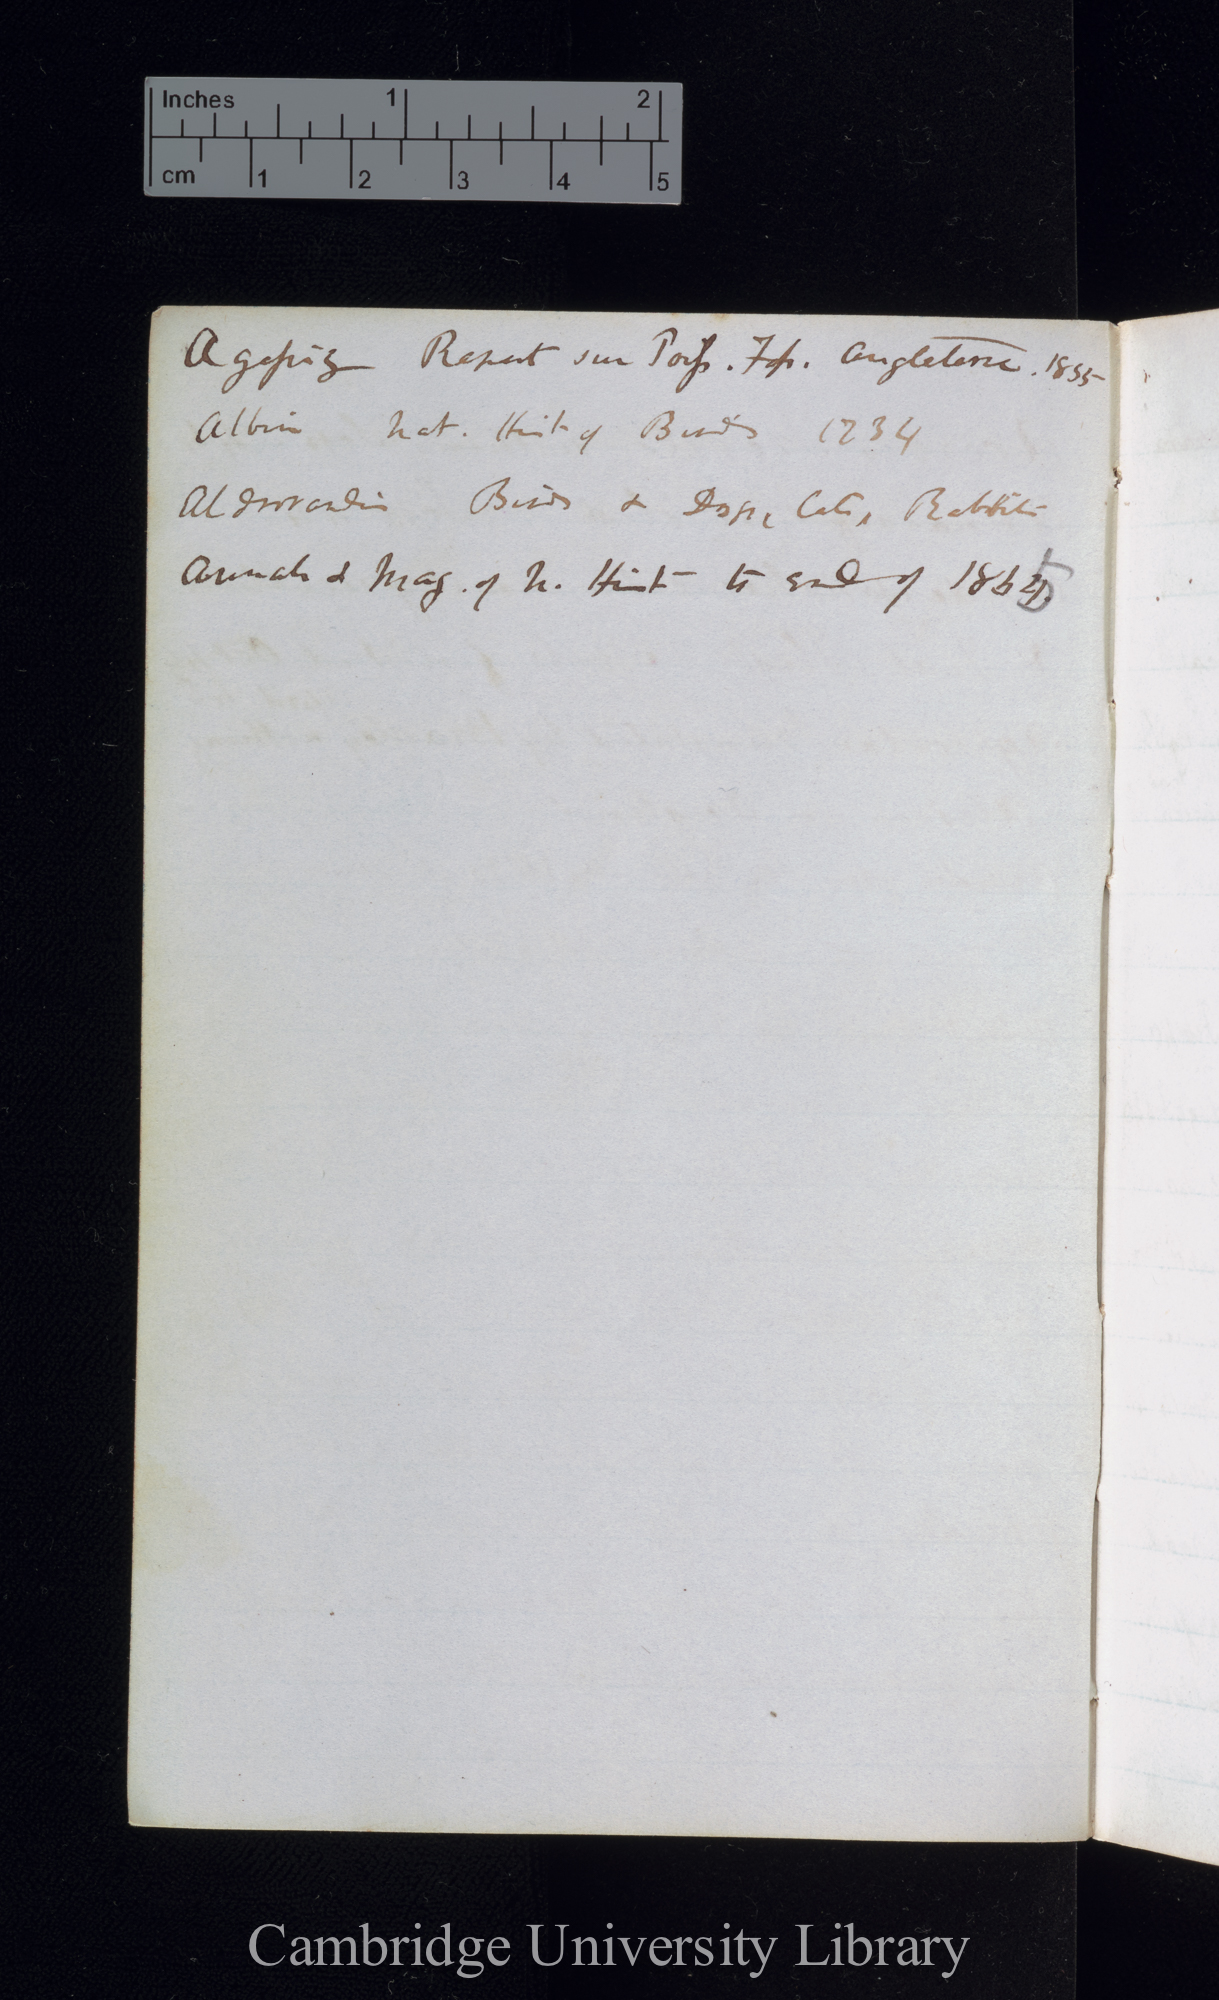 Inches 1 2
cm 1 2 3 4 5
Agassiz Report sur Poiss. Foss. Angleterre. 1835
Albin Nat. Hist of Birds 1734
Aldrovandi Birds & Dogs, Cats, Rabbits
Annals & Mag. of N. Hist to end of 1865
Cambridge University Library